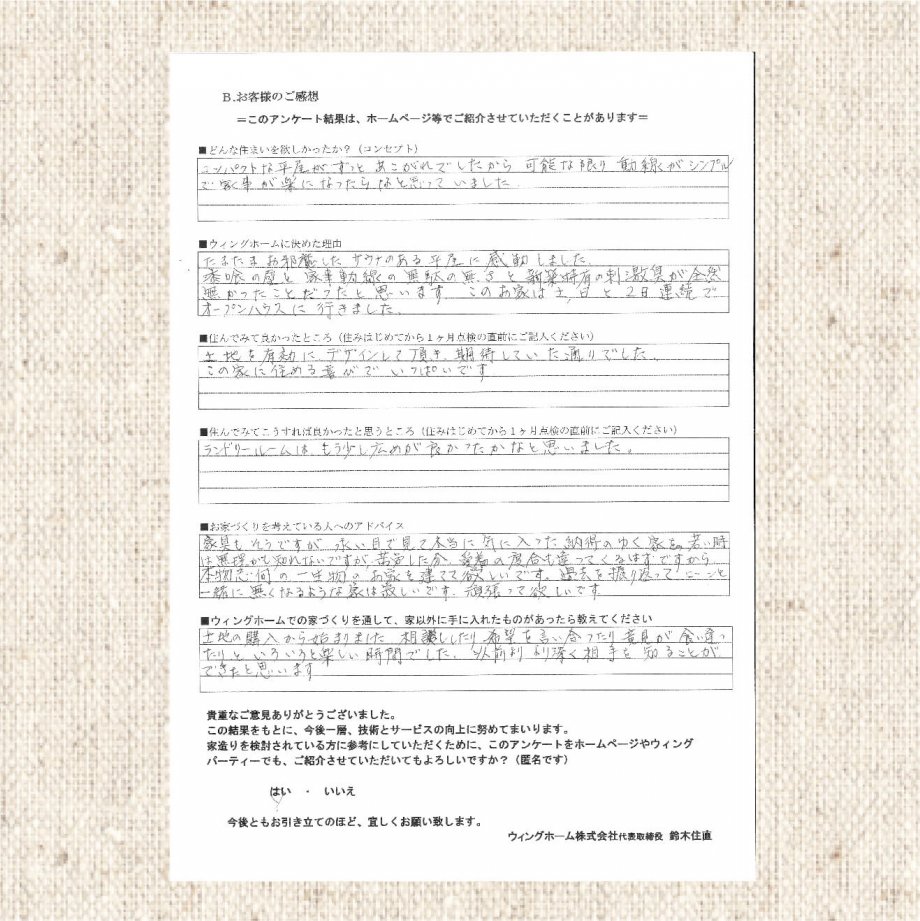 B.お客様のご感想
＝このアンケート結果は、ホームページ等でご紹介させていただくことがあります＝
■どんな住まいを欲しかったか？（コンセプト）
コンパクトな平屋がずっとあこがれでしたから 可能な限り 動線がシンプル
で家事が楽になったらなと思っていました。
■ウィングホームに決めた理由
たまたまお邪魔したサウナのある平屋に感動しました。
漆喰の壁と家事動線の無駄の無さと新築特有の刺激臭が全然
無かったことだったと思います。このお家は土,日と2日連続で
オープンハウスに行きました。
■住んでみて良かったところ（住みはじめてから１ヶ月点検の直前にご記入ください）
土地を有効に、デザインして頂き、期待していた通りでした。
この家に住める喜びでいっぱいです
■住んでみてこうすれば良かったと思うところ（住みはじめてから１ヶ月点検の直前にご記入ください）
ランドリールームは、もう少し広めが良かったかなと思いました。
■お家づくりを考えている人へのアドバイス
家具もそうですが 永い目で見て本当に気に入った納得のゆく家を。若い時
は無理かも知れないですが、苦労した分、愛着の度合も違ってくるはずですから
本物志向の一生物のお家を建てて欲しいです。過去を振り返って
一緒に無くなるような家は寂しいです。頑張って欲しいです
■ウィングホームでの家づくりを通して、家以外に手に入れたものがあったら教えてください
土地の購入から始まりました。相談したり希望を言い合ったり意見が食い違っ
たりと、いろいろと楽しい時間でした。以前より深く相手を知ることが
できたと思います
貴重なご意見ありがとうございました。
この結果をもとに、今後一層、技術とサービスの向上に努めてまいります。
家造りを検討されている方に参考にしていただくために、このアンケートをホームページやウィング
パーティーでも、ご紹介させていただいてもよろしいですか？（匿名です）
はい ・ いいえ
今後ともお引き立てのほど、宜しくお願い致します。
ウィングホーム株式会社代表取締役 鈴木住直